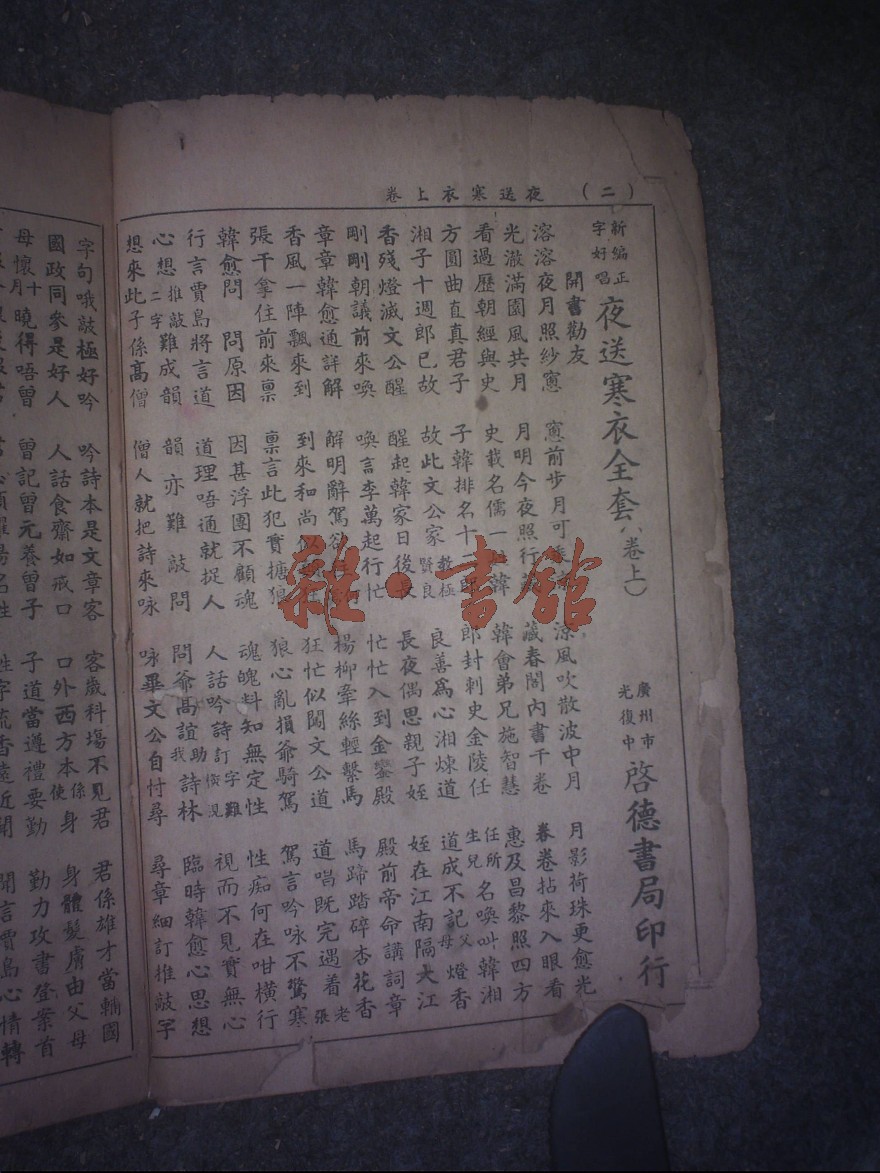 (二) 夜送寒衣上卷
新編正字好唱 夜送寒衣全套(卷上) 廣州市光復中 啓德書局印行
開書勸友
溶溶夜月照紗窻 窻前步月可 涼風吹散波中月 月影荷珠更愈光
光澈滿園風共月 月明今夜照行 藏春閣內書千卷 眷卷拈來入眼看
看過歷朝經與史 史載名儒一 韓 韓會弟兄施智慧 惠及昌黎照四方
方圓曲直真君子 子韓排名十二郎 郎封刺史金陵任 任所生兒名喚叫韓湘
湘子十週郎已故 故此文公家教極賢良 良善爲心湘煉道 道成不記父母燈香
香殘燈滅文公醒 醒起韓家日後長 長夜偶思親子姪 姪在江南隔大江
剛剛朝議前來喚 喚言李萬起行忙 忙忙入到金鑾殿 殿前帝命講詞章
章章韓愈通詳解 解明辭駕欲 楊柳牽絲輕繫馬 馬蹄踏碎杏花香
香風一陣飄來到 到來和尚似 狂 狂忙似闖文公道 道唱既完遇着老張
張千拿住前來稟 稟言此犯實搪狼 狼心亂損爺騎駕 駕言吟咏不驚寒
韓愈問 問原因 因甚浮圖不顧魂 魂魄料知無定性 性痴何在咁橫行
行言賈島將言道 道理唔通就捉人 人話吟詩訂字難 視而不見實無心
心想推敲二字難成韻 韻亦難敲問 問爺高誼助我詩林 臨時韓愈心思想
想來此子係高僧 僧人就把詩來咏 咏畢文公自忖尋 尋章細訂推敲字
字句哦敲極好吟 吟詩本是文章客 客歲科塲不見君 君係雄才當輔國
國政同參是好人 人話食齋如戒口 口外西方本係使身 身體髮膚由父母
母懷十月曉得唔曾 曾記曾元養曾子 子道當遵禮要勤 勤力攻書登案首
開言賈島心情轉
雜·書館